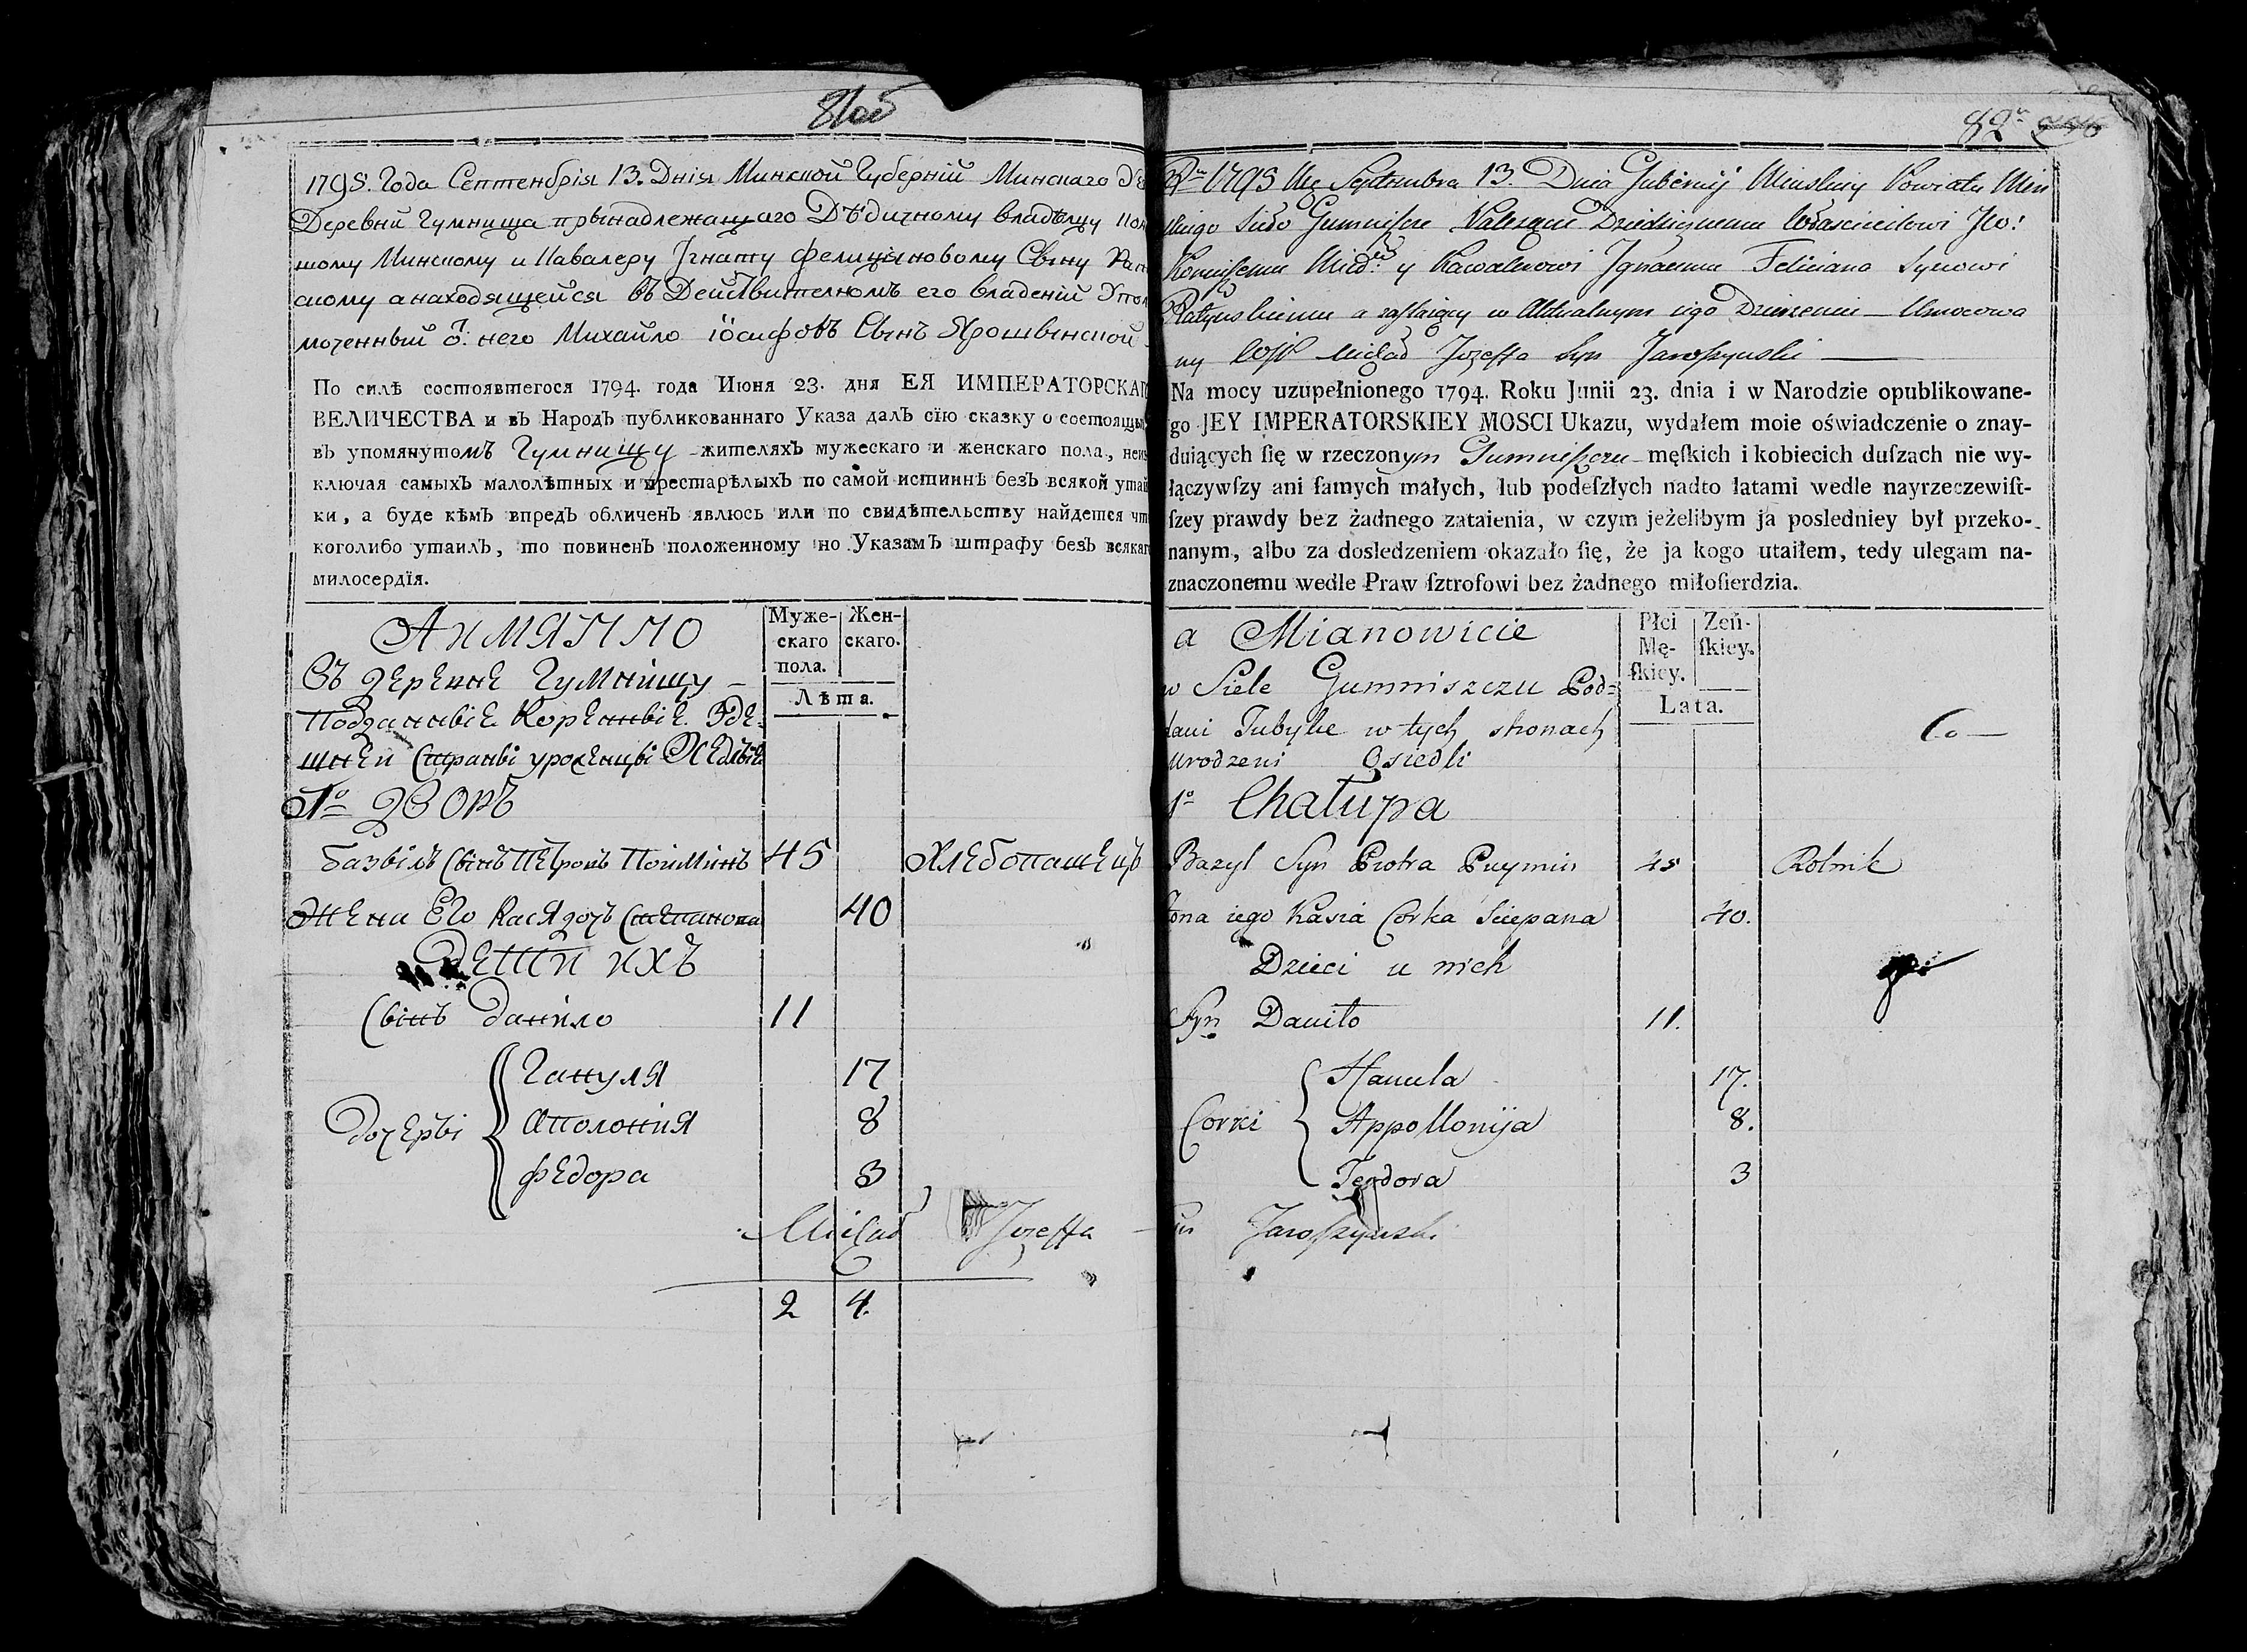 81об
1795. Года Септембрія 13. Дня Минской Губерніи Минскаго
Деревни Гумнища прынадлежащаго Дѣдичному владѣлцу
шому Минскому и Кавалеру Игнату Фелиціяновому Сыну
скому а находящейся въ Действителномъ его владеніи
моченный от него Михайло іосифовъ Сынъ Ярошынской
По силѣ состоявшегося 1794. года Июня 23. дня ЕЯ ИМПЕРАТОРСКАГО
ВЕЛИЧЕСТВА и въ Народъ публикованнаго Указа далъ сїю сказку о состоящы
въ упомянутомъ Гумнищу жителяхъ мужескаго и женскаго пола, неис
ключая самыхъ малолѣтныхъ и престарѣлыхъ по самой истиннѣ безъ всякой утай
ки, а буде кѣмъ впредъ обличенъ явлюсь или по свидѣтельству найдется что
коголибо утаилъ, то повиненъ положенному по Указамъ штрафу безъ всякаго
милосердїя.
Муже-
скаго
пола.
Жен-
скаго.
Лѣта.
А имянно
Въ деревне Гумнищу
Подданныіе Коренныіе Зде-
шней Страны уроженцы
1о Дворъ
Базыль Сынъ Петровъ Пойминъ 45 Хлебопашецъ
Жена Его Кася дочь Степанова 40
Дети ихъ
Сынъ данило 11
дочеры
Гануля 17
Аполонія 8
федора 3
Michał Jozeffa
2 4.
82
Rku 1795 Mca Septembra 13. Dnia Gubernij Minskiey Powiatu Min
skiego Sioło Gumniszcze Należące Dziedzicznemu Włascicielowi
y Kawalerowi Jgnacemu Feliciana Synowi
Ratyńskiemu a zostaiący w Aktualnym iego Dzierżeniu Umocowa
ny Michał Jozeffa Syn Jaroszynski
Na mocy uzupełnionego 1794. Roku Junii 23. dnia i w Narodzie opublikowane-
go JEY IMPERATORSKIEY MOSCI Ukazu, wydałem moie oświadczenie o znay-
duiących ſię w rzeczonym Gumniszczu męſkich i kobiecich duſzach nie wy-
łączywſzy ani ſamych małych, lub podeſzłych nadto latami wedle nayrzeczewiſt-
ſzey prawdy bez żadnego zataienia, w czym jeżelibym ja posledniey był przeko-
nanym, albo za dosledzeniem okazało ſię, że ja kogo utaiłem, tedy ulegam na-
znaczonemu wedle Praw ſztrofowi bez żadnego miłoſierdzia.
Płci
Mę-
ſkiey.
Zeń-
ſkiey.
Lata.
a Mianowicie
w Siele Gumniszczu Pod-
dani Tubylce w tych stronach
urodzeni Osiedli
1o Chałupa
Bazyl Syn Piotra Puymin 45 Rolnik
Żona iego Kasia Corka Sciepana 40.
Dzieci u nich
Syn Daniło 11.
Corki
Hanula 17.
Appollonija 8.
Teodora 3
Syn Jaroszynski